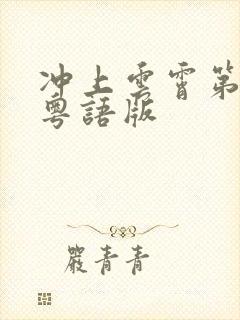 冲上雲霄第
粵語版
嚴青青